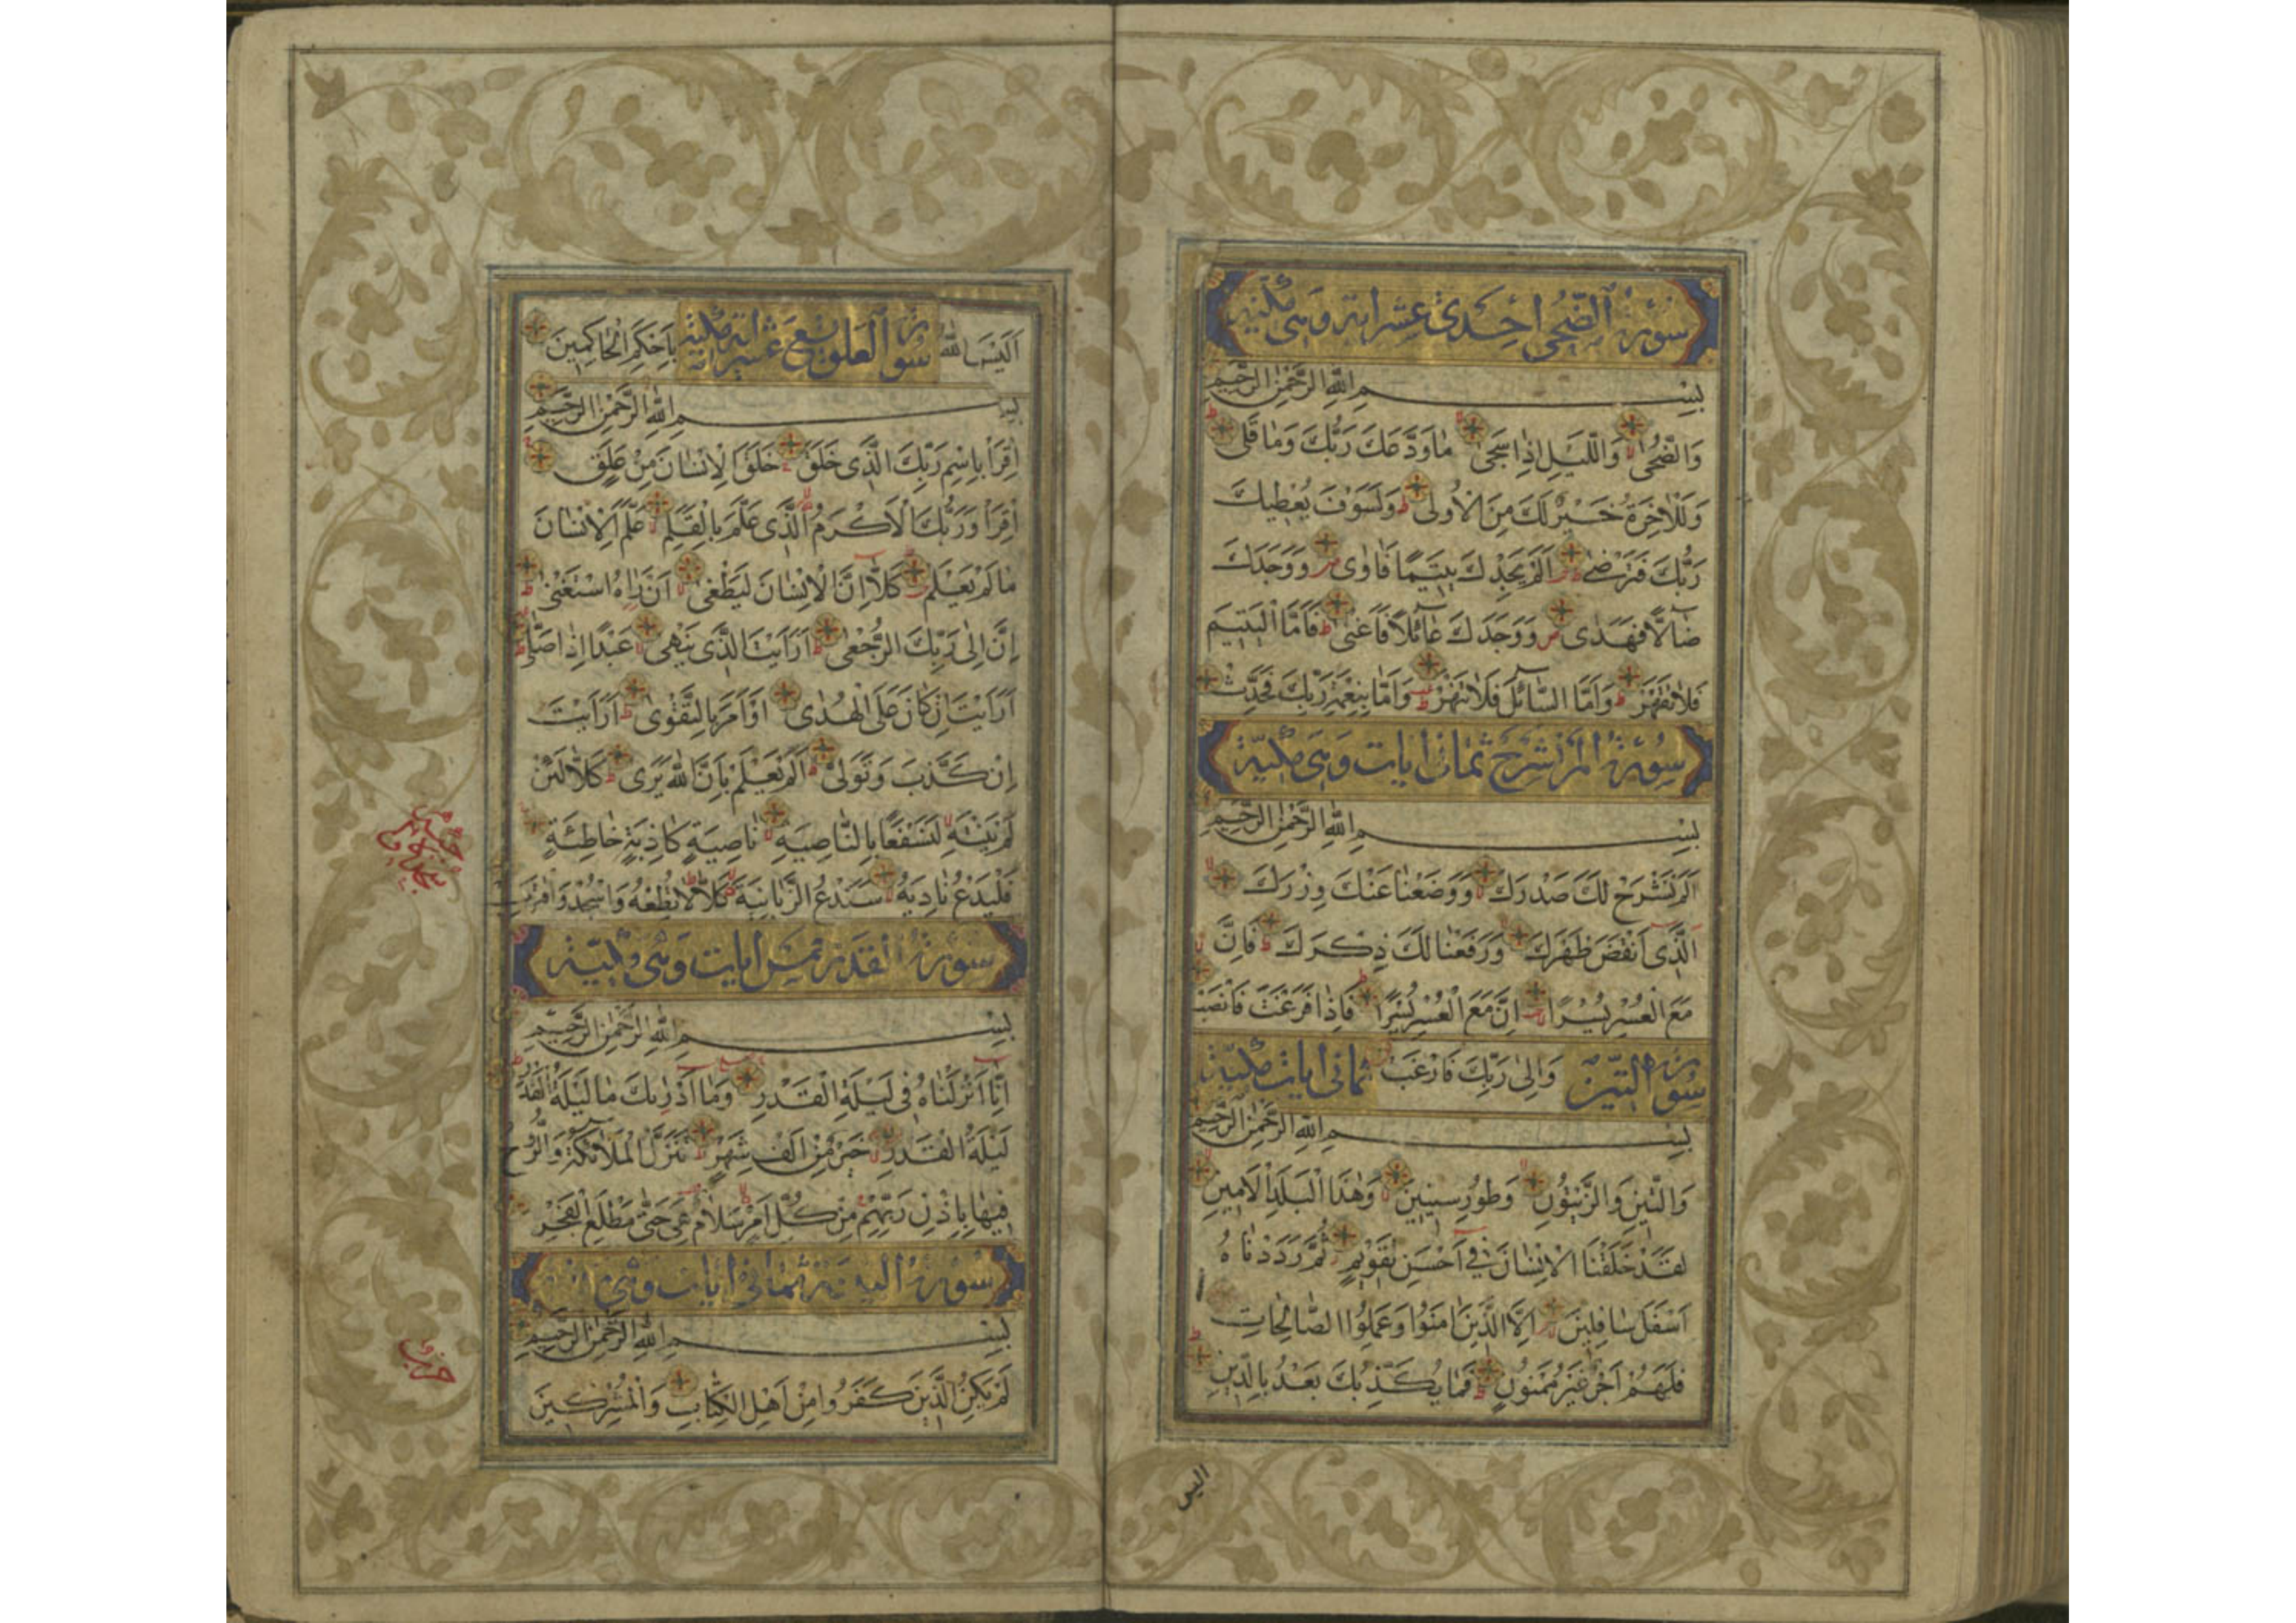 سورة الضحى احدى عشر اية وهى مكية
بسم الله الرحمن الرحيم
وَالضُّحٰى وَالَّيْلِ اِذَا سَجٰى مٰا وَدَّعَكَ رَبُّكَ وَمٰا قَلٰى
وَلَلْاٰخِرَةُ خَيْرٌ لَكَ مِنَ الْاُولٰى وَلَسَوْفَ يُعْطِيكَ
رَبُّكَ فَتَرْضٰى اَلَمْ يَجِدْكَ يَتِيمًا فَاٰوٰى وَوَجَدَكَ
ضٰالًّا فَهَدٰى وَوَجَدَكَ عٰائِلًا فَاَغْنٰى فَاَمَّا الْيَتِيمَ
فَلٰا تَقْهَرْ وَاَمَّا السّٰائِلَ فَلٰا تَنْهَرْ وَاَمّٰا بِنِعْمَةِ رَبِّكَ فَحَدِّثْ
سورة الم نشرح ثمان ايات وهى مكية
بسم الله الرحمن الرحيم
اَلَمْ نَشْرَحْ لَكَ صَدْرَكَ وَوَضَعْنٰا عَنْكَ وِزْرَكَ
الَّذِى اَنْقَضَ ظَهْرَكَ وَرَفَعْنٰا لَكَ ذِكْرَكَ فَاِنَّ
مَعَ الْعُسْرِ يُسْرًا اِنَّ مَعَ الْعُسْرِ يُسْرًا فَاِذٰا فَرَغْتَ فَانْصَبْ
سورة التين وَاِلٰى رَبِّكَ فَارْغَبْ ثمانى ايات مكية
بسم الله الرحمن الرحيم
وَالتِّينِ وَالزَّيْتُونِ وَطُورِ سِينِينَ وَهٰذَا الْبَلَدِ الْاَمِينِ
لَقَدْ خَلَقْنَا الْاِنْسٰانَ فِى اَحْسَنِ تَقْوِيمٍ ثُمَّ رَدَدْنٰاهُ
اَسْفَلَ سٰافِلِينَ اِلَّا الَّذِينَ اٰمَنُوا وَعَمِلُوا الصّٰالِحٰاتِ
فَلَهُمْ اَجْرٌ غَيْرُ مَمْنُونٍ فَمٰا يُكَذِّبُكَ بَعْدُ بِالدِّينِ
اليس
اَلَيْسَ اللّٰهُ سورة العلق تسع عشر اية مكية بِاَحْكَمِ الْحٰاكِمِينَ
بسم الله الرحمن الرحيم
اِقْرَأْ بِاسْمِ رَبِّكَ الَّذِى خَلَقَ خَلَقَ الْاِنْسٰانَ مِنْ عَلَقٍ
اِقْرَأْ وَرَبُّكَ الْاَكْرَمُ الَّذِى عَلَّمَ بِالْقَلَمِ عَلَّمَ الْاِنْسٰانَ
مٰا لَمْ يَعْلَمْ كَلّٰا اِنَّ الْاِنْسٰانَ لَيَطْغٰى اَنْ رَاٰهُ اسْتَغْنٰى
اِنَّ اِلٰى رَبِّكَ الرُّجْعٰى اَرَاَيْتَ الَّذِى يَنْهٰى عَبْدًا اِذٰا صَلّٰى
اَرَاَيْتَ اِنْ كٰانَ عَلَى الْهُدٰى اَوْ اَمَرَ بِالتَّقْوٰى اَرَاَيْتَ
اِنْ كَذَّبَ وَتَوَلّٰى اَلَمْ يَعْلَمْ بِاَنَّ اللّٰهَ يَرٰى كَلّٰا لَئِنْ
لَمْ يَنْتَهِ لَنَسْفَعًا بِالنّٰاصِيَةِ نٰاصِيَةٍ كٰاذِبَةٍ خٰاطِئَةٍ
فَلْيَدْعُ نٰادِيَهُ سَنَدْعُ الزَّبٰانِيَةَ كَلّٰا لٰا تُطِعْهُ وَاسْجُدْ وَاقْتَرِبْ
سورة القدر خمس ايات وهى مكية
بسم الله الرحمن الرحيم
اِنّٰا اَنْزَلْنٰاهُ فِى لَيْلَةِ الْقَدْرِ وَمٰا اَدْرٰيكَ مٰا لَيْلَةُ الْقَدْرِ
لَيْلَةُ الْقَدْرِ خَيْرٌ مِنْ اَلْفِ شَهْرٍ تَنَزَّلُ الْمَلٰائِكَةُ وَالرُّوحُ
فِيهٰا بِاِذْنِ رَبِّهِمْ مِنْ كُلِّ اَمْرٍ سَلٰامٌ هِىَ حَتّٰى مَطْلَعِ الْفَجْرِ
سورة البينة ثمانى ايات وهى
بسم الله الرحمن الرحيم
لَمْ يَكُنِ الَّذِينَ كَفَرُوا مِنْ اَهْلِ الْكِتٰابِ وَالْمُشْرِكِينَ
حزب